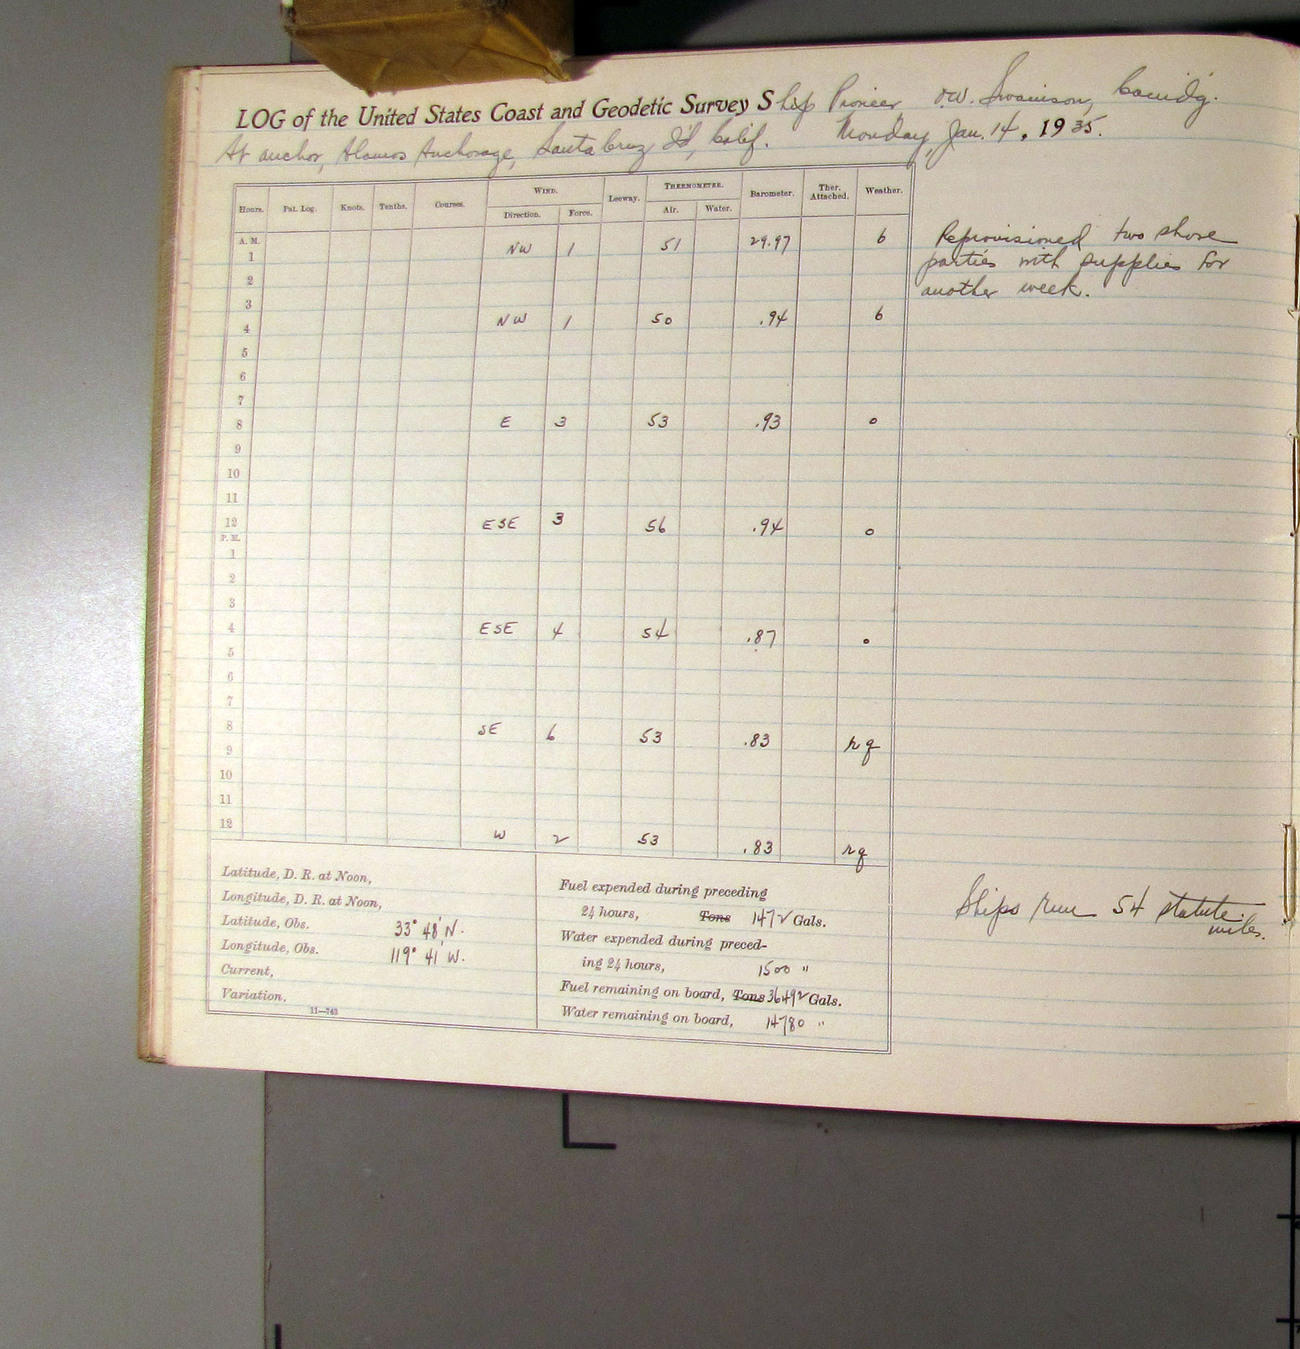 LOG of the United States Coast and Geodetic Survey Ship Pioneer O.W. Swainson, Comd'g.
At anchor, Alamos Anchorage, Santa Cruz I'd, Calif. Monday, Jan. 14, 1935.
Hours. Pat. Log. Knots. Tenths. Courses. WIND. Leeway. THERMOMETER. Barometer. Ther. Attached. Weather.
Direction. Force. Air. Water.
A. M.
1 NW 1 51 29.97 b
2
3
4 NW 1 50 .94 b
5
6
7
8 E 3 53 .93 o
9
10
11
12 ESE 3 56 .94 o
P. M.
1
2
3
4 ESE 4 54 .87 o
5
6
7
8 SE 6 53 .83 rq
9
10
11
12 W 2 53 .83 rq
Reprovisioned two shore
parties with supplies for
another week.
Ships run 54 statute
miles.
Latitude, D. R. at Noon,
Longitude, D. R. at Noon,
Latitude, Obs. 33° 48' N.
Longitude, Obs. 119° 41' W.
Current,
Variation,
11—743
Fuel expended during preceding
24 hours, Tons 1472 Gals.
Water expended during preced-
ing 24 hours, 1500 "
Fuel remaining on board, Tons 36492 Gals.
Water remaining on board, 14780 "